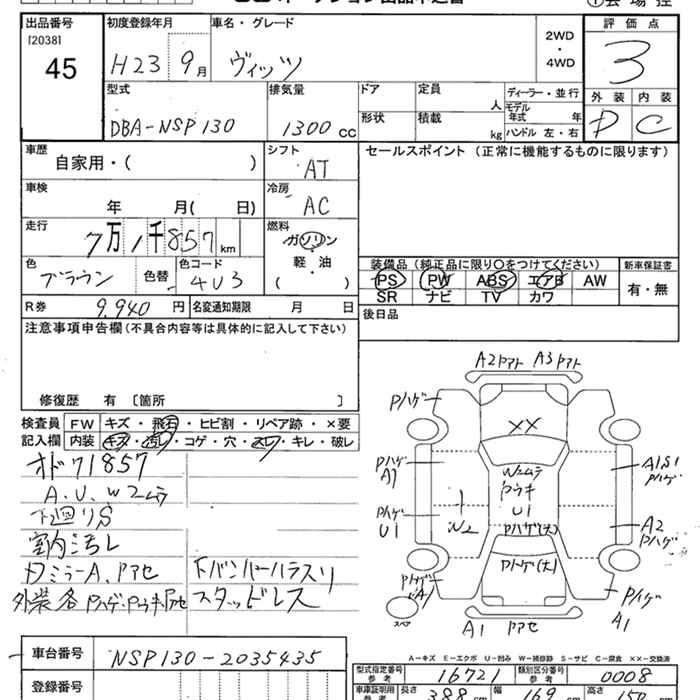 出品番号
[2038]
45
初度登録年月
H23 9月
車名・グレード
ヴィッツ
2WD
・
4WD
評価点
3
外装 内装
D C
型式
DBA-NSP130
排気量
1300 CC
ドア
形状
定員
人
積載
kg
ディーラー・並行
モデル
年式 年
ハンドル 左・右
車歴
自家用・( )
シフト
AT
車検
年 月( 日)
冷房
AC
走行
7万1千857 km
燃料
ガソリン
軽・油
( )
色
ブラウン
色替
色コード
4U3
R券 9,940 円
名変通知期限 月 日
セールスポイント (正常に機能するものに限ります)
装備品 (純正品に限り○をつけてください)
PS PW ABS エアB AW
SR ナビ TV カワ
新車保証書
有・無
後日品
注意事項申告欄 (不具合内容等は具体的に記入して下さい)
修復歴 有 〔箇所 〕
検査員
記入欄
FW キズ・飛石・ヒビ割・リペア跡・×要
内装 キズ・汚レ・コゲ・穴・スレ・キレ・破レ
オド71857
A、U、W2ムラ
下廻りS
室内汚レ
Dミラー A、Pアセ
外装各Pハゲ・Pウキ Pアセ
下バンパーハラスリ
スタッドレス
A2 Pアト A3 Pアト
Pハゲ
XX
Pハゲ
A1
W2ムラ
Pウキ
U1
A1S1
Pハゲ
Pハゲ
U1
W2
Pハゲ(大)
A2
Pハゲ
Pハゲ(大)
Pハゲ
A1
スペア
A1 Pアセ
A-キズ E-エクボ U-凹み W-補修跡 S-サビ C-腐食 XX-交換済
車台番号
NSP130-2035435
登録番号
型式指定番号
参考
16721
類別区分番号
参考
0008
車庫証明用
参考
長さ
388 cm
幅
169 cm
高さ
150